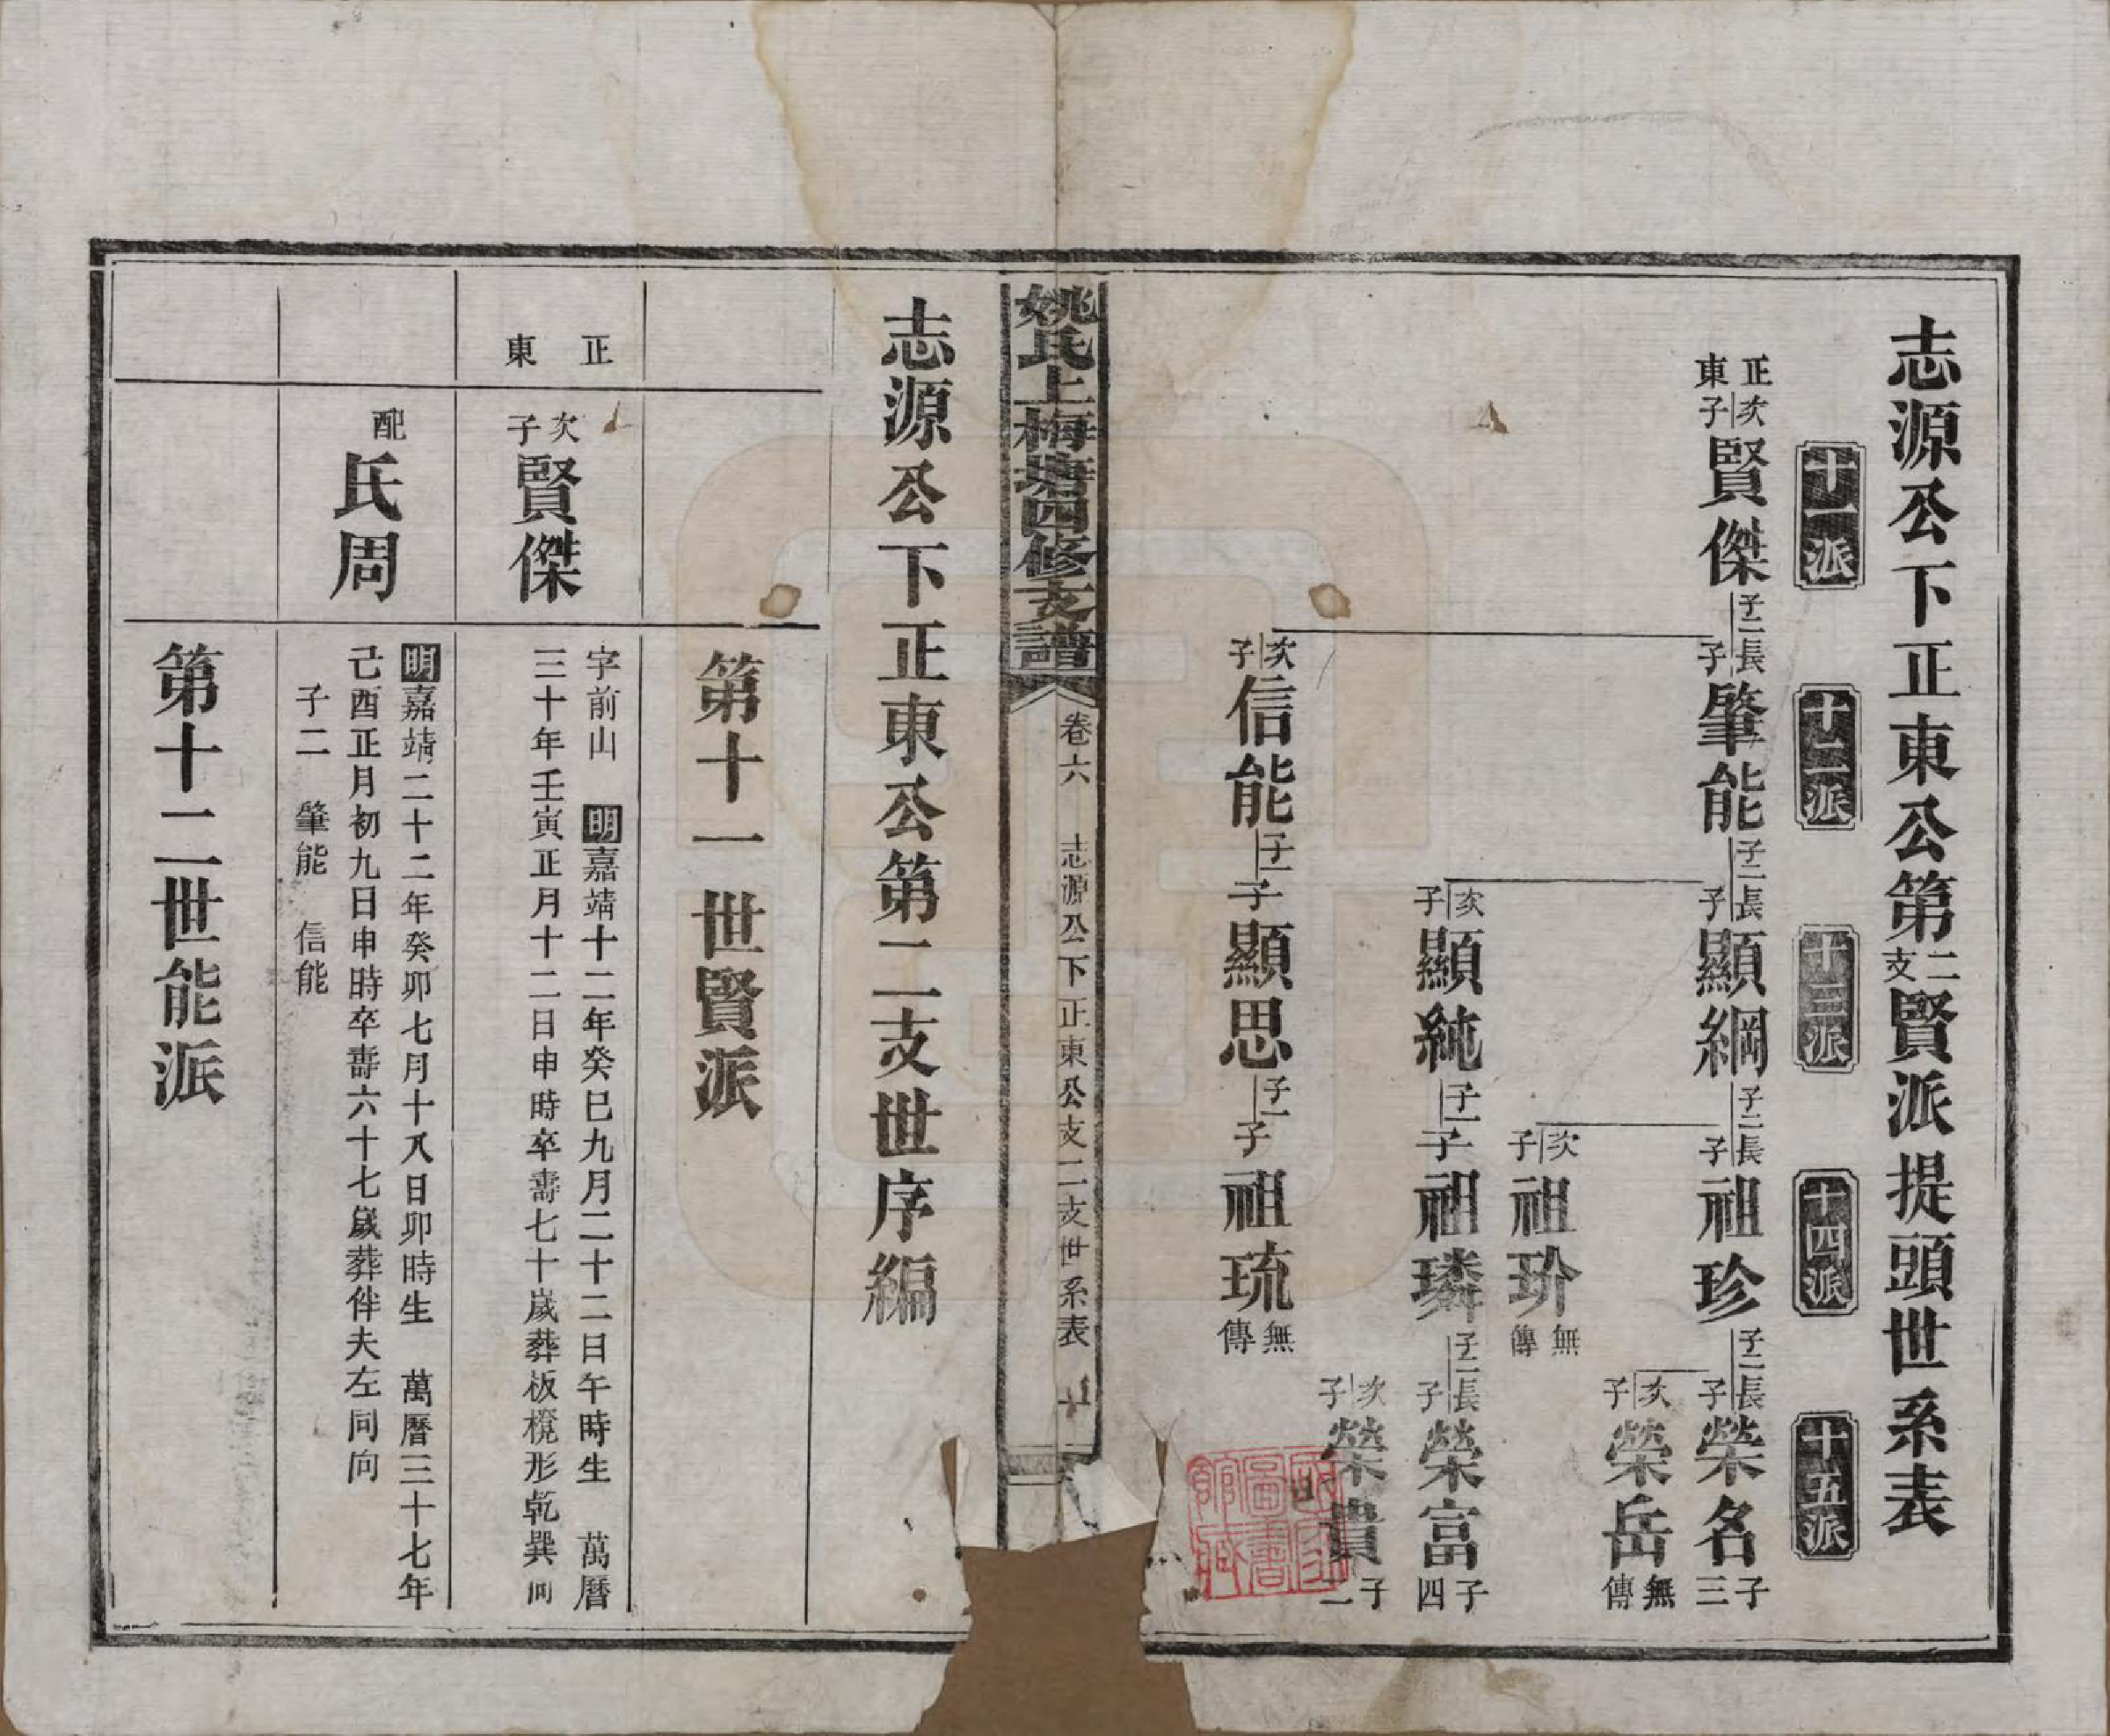 志源公下正東公第二支賢派提頭世系表
十一派
十二派
十三派
十四派
十五派
正東次子賢傑子二長子肇能子二長子顯綱子二長子祖珍子二長子榮名子三
次子榮岳無傳
次子祖玠無傳
次子顯純子一子祖璘子二長子榮富子四
次子榮貴子二
次子信能子一子顯思子一子祖琉無傳
姚氏上梅塘四修支譜
卷六 志源公下正東公支二支世系表
志源公下正東公第二支世序編
第十一世賢派
正東
次子賢傑
字前山 明嘉靖十二年癸巳九月二十二日午時生 萬曆
三十年壬寅正月十二日申時卒壽七十歲葬板櫈形乾巽向
配氏周
明嘉靖二十二年癸卯七月十八日卯時生 萬曆三十七年
己酉正月初九日申時卒壽六十七歲葬伴夫左同向
子二 肇能 信能
第十二世能派